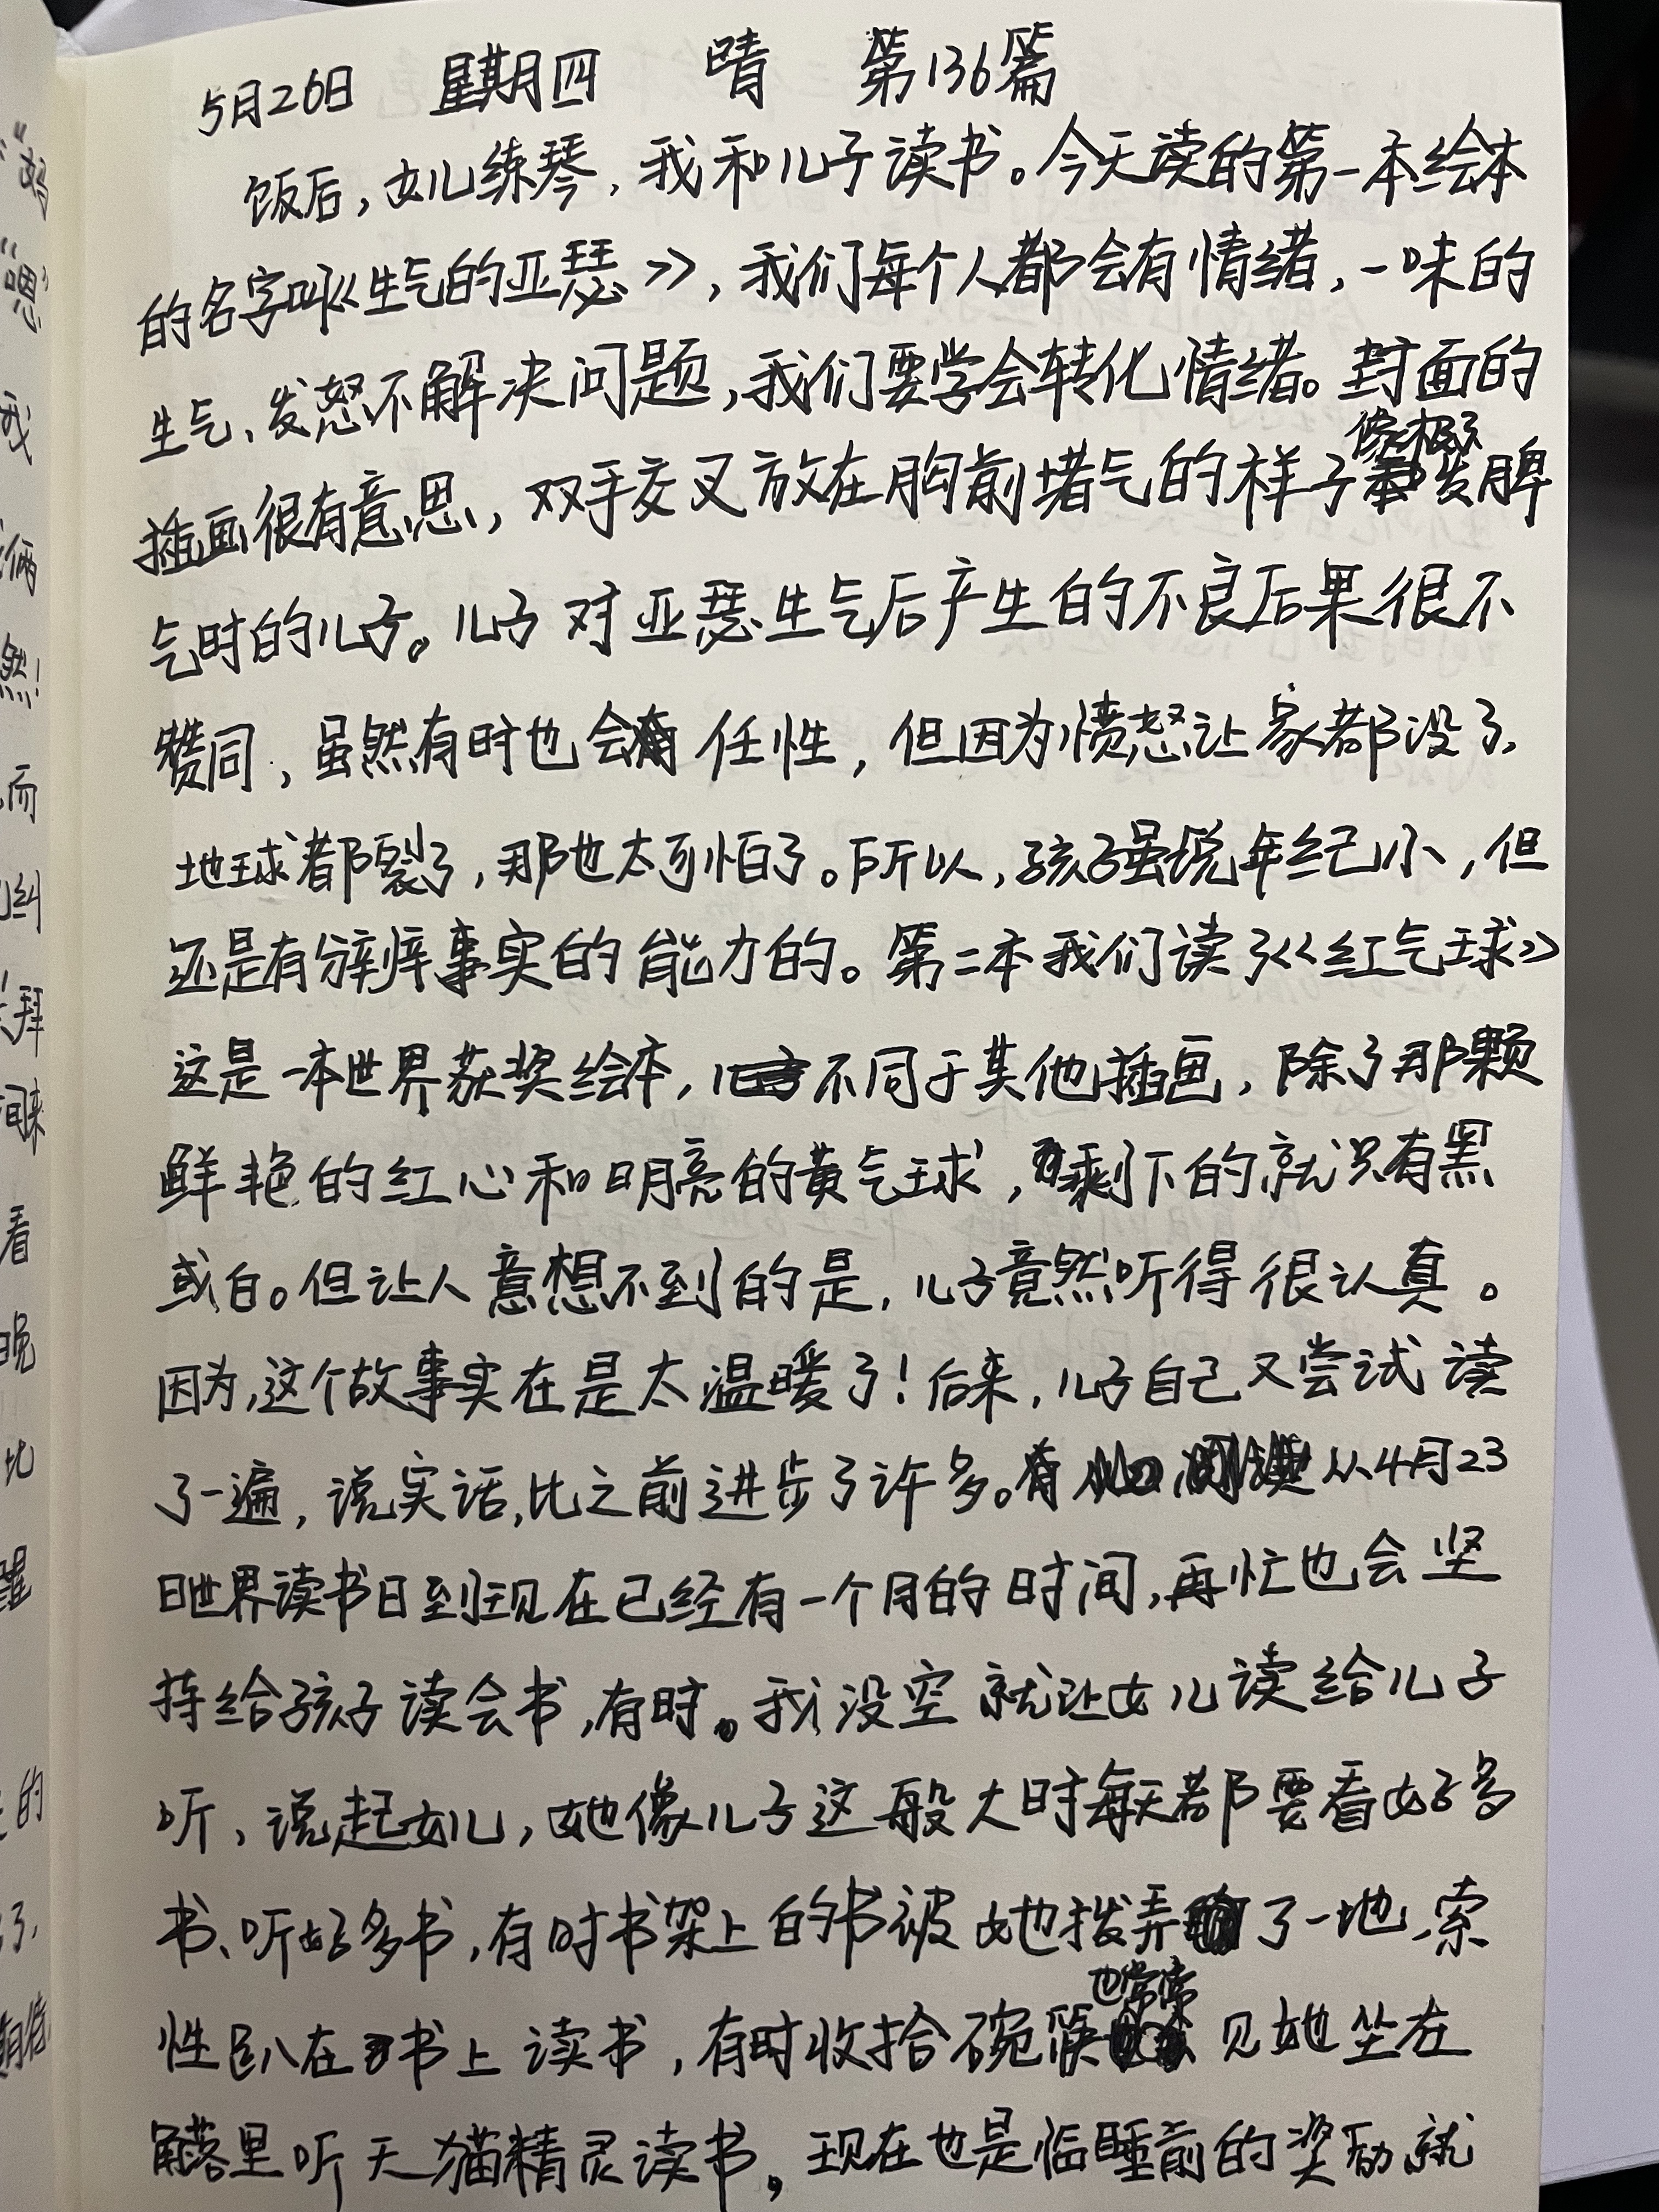 5月26日 星期四 晴 第136篇
饭后，女儿练琴，我和儿子读书。今天读的第一本绘本
的名字叫《生气的亚瑟》，我们每个人都会有情绪，一味的
生气、发怒不解决问题，我们要学会转化情绪。封面的
插画很有意思，双手交叉放在胸前堵气的样子像极了发脾
气时的儿子。儿子对亚瑟生气后产生的不良后果很不
赞同，虽然有时也会任性，但因为愤怒让家都没了，
地球都裂了，那也太可怕了。所以，孩子虽说年纪小，但
还是有分辨事实的能力的。第二本我们读了《红气球》
这是一本世界获奖绘本，不同于其他插画，除了那颗
鲜艳的红心和明亮的黄气球，剩下的就只有黑
或白。但让人意想不到的是，儿子竟然听得很认真。
因为，这个故事实在是太温暖了！后来，儿子自己又尝试读
了一遍，说实话，比之前进步了许多。从4月23
日世界读书日到现在已经有一个月的时间，再忙也会坚
持给孩子读会书，有时。我没空就让女儿读给儿子
听，说起女儿，她像儿子这般大时每天都要看好多
书、听好多书，有时书架上的书被她拨弄了一地，索
性趴在书上读书，有时收拾碗筷也常常见她坐在
角落里听天猫精灵读书。现在也是临睡前的奖励就